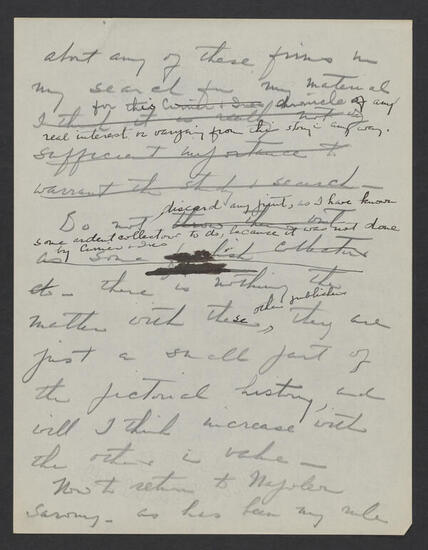 about any of these firms in
my search for my material
for this Currier & Ives chronicle of any
I think it is really not of
real interest or varying from this story in any way.
sufficient importance to
warrant the study & search —
discard any print, as I have known
Do not throw
some ardent collectors to do, because it was not done
by Currier & Ives
as some collectors
do — there is nothing the
other publishers
matter with these, they are
just a small part of
the pictorial history, and
will I think increase with
the others in value —
Now to return to Napoleon
Sarony — as has been my rule